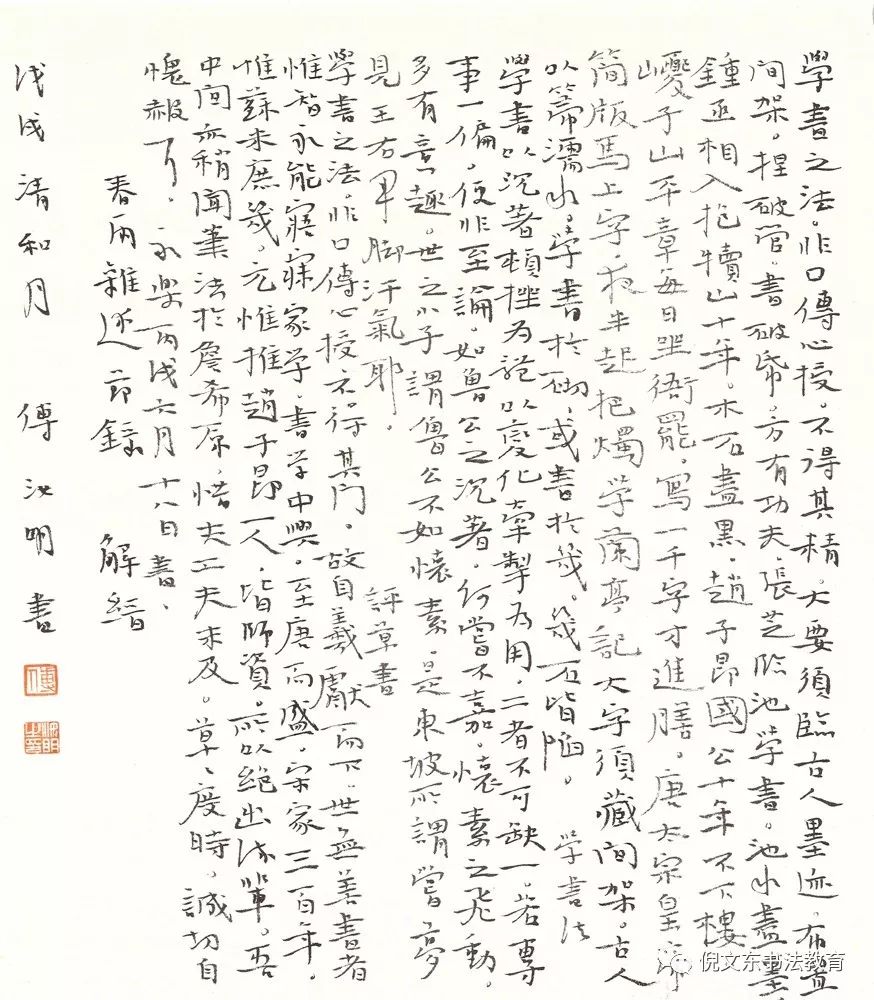 學書之法。非口傳心授。不得其精。大要須臨古人墨迹。布置
间架。捏破管。書破紙。方有功夫。張芝臨池學書。池水盡墨。
鍾丞相入抱犢山十年。木石盡黑。趙子昂國公十年不下樓。
巙子山平章每日坐衙罷。寫一千字才進膳。唐太宗皇帝
簡版馬上字。夜半起把燭学蘭亭記。大字須藏间架。古人
以箒濡水。學書於砌。或書於几。几石皆陷。 学書法
學書以沉著頓挫为體。以變化牽掣为用。二者不可缺一。若專
事一偏。便非至論。如魯公之沉著。何嘗不嘉。懷素之飛動。
多有意趣。世之小子謂魯公不如懷素。是東坡所謂嘗夢
見王右軍脚汗氣耶。 評草書
學書之法。非口傳心授不得其門。故自羲獻而下。世無善書者
惟智永能寤寐家学。書学中興。至唐而盛。宋家三百年。
惟蘇米庶几。元惟推趙子昂一人。皆師資。所以絶出流輩。吾
中间亦稍闻筆法於詹希原。惜夫工夫未及。草々度時。誠切自
愧赧耳。永樂丙戌六月十八日書。
春雨雜述節錄 解縉
戊戌清和月 傅汝明書
倪文东书法教育